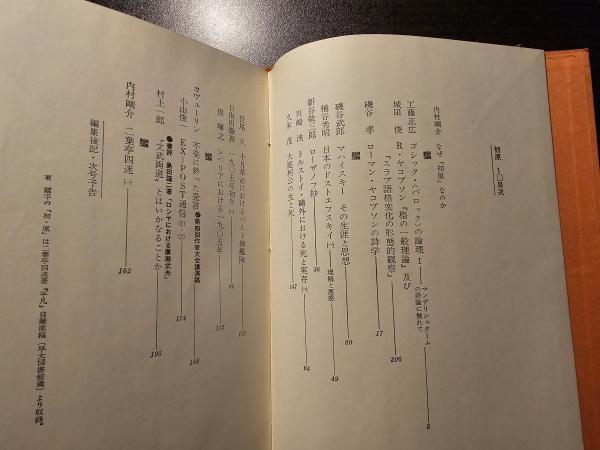 初原 1□目次
内村剛介 なぜ『初原』なのか
工藤正広 ゴシック・〈バロック〉の論理 Ⅰ
マンデリシュタームの詩論に触れて 5
城田 俊 R・ヤコブソン『格の一般理論』及び
『スラブ語格変化の形態的観察』 206
磯谷 孝 ローマン・ヤコブソンの詩学 17
磯谷武郎 マハイスキー その生涯と思想 80
桶谷秀昭 日本のドストエフスキイ ㈠ 理解と悪感 49
新谷敬三郎 ローザノフ抄 36
川崎 浹 トルストイ・鷗外における死と実存 ㈠ 64
久米 茂 大庭柯公の生と死 147
長尾 久 十月革命におけるバルト海艦隊
日南田静真 一九〇五年初冬 ㈠
原 暉之 シベリアにおける一九〇五年
カヴェーリン 不発に終った発言 ●第四回作家大会講演稿 188
小山俊一 EX-POST通信 (1) (2) 174
●書評 島田謹二著『ロシヤにおける廣瀬武夫』
村上一郎 “文武両道”とはいかなることか 195
内村剛介 二葉亭四迷 ㈠ 162
編集後記・次号予告
※ 題字の「初・原」は二葉亭四迷著『平凡』自筆原稿(早大図書館蔵)より収録。